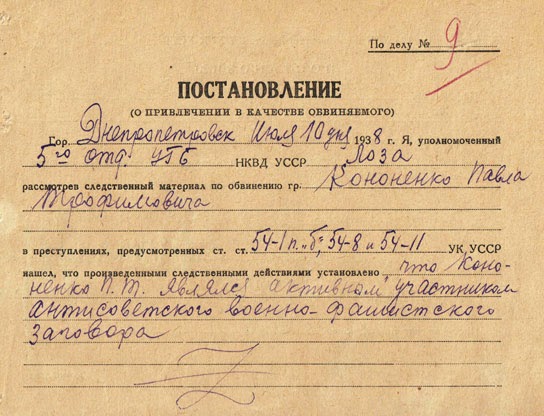 По делу № 9
ПОСТАНОВЛЕНИЕ
(О ПРИВЛЕЧЕНИИ В КАЧЕСТВЕ ОБВИНЯЕМОГО)
Гор. Днепропетровск Июля 10 дня 1938 г. Я, уполномоченный
5го отд. УГБ НКВД УССР Лоза
рассмотрев следственный материал по обвинению гр. Кононенко Павла
Трофимовича
в преступлениях, предусмотренных ст. ст. 54-1 п. „б“, 54-8 и 54-11 УК УССР
нашел, что произведенными следственными действиями установлено, что Коно-
ненко П. Т. являлся активном участником
антисоветского военно-фашистского
заговора